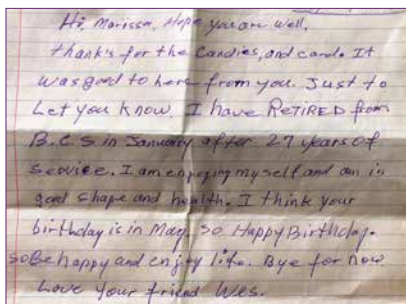 Hi, Marissa, Hope you are well.
thank's for the Candies, and card. It
was good to here from you. Just to
Let you know, I have RETIRED from
B.C.S. in January after 27 years of
service. I am enjoying myself and am in
good shape and health. I think your
birthday is in May. so Happy Birthday.
so Be happy and enjoy life. Bye for now
Love Your friend Wes.